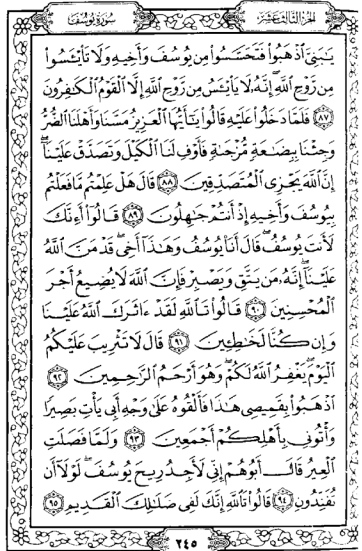 الجزء الثالث عشر
سورة يوسف
يَٰبَنِىَّ ٱذْهَبُوا۟ فَتَحَسَّسُوا۟ مِن يُوسُفَ وَأَخِيهِ وَلَا تَا۟يْـَٔسُوا۟
مِن رَّوْحِ ٱللَّهِ ۖ إِنَّهُۥ لَا يَا۟يْـَٔسُ مِن رَّوْحِ ٱللَّهِ إِلَّا ٱلْقَوْمُ ٱلْكَٰفِرُونَ
٨٧ فَلَمَّا دَخَلُوا۟ عَلَيْهِ قَالُوا۟ يَٰٓأَيُّهَا ٱلْعَزِيزُ مَسَّنَا وَأَهْلَنَا ٱلضُّرُّ
وَجِئْنَا بِبِضَٰعَةٍ مُّزْجَىٰةٍ فَأَوْفِ لَنَا ٱلْكَيْلَ وَتَصَدَّقْ عَلَيْنَآ ۖ
إِنَّ ٱللَّهَ يَجْزِى ٱلْمُتَصَدِّقِينَ ٨٨ قَالَ هَلْ عَلِمْتُم مَّا فَعَلْتُم
بِيُوسُفَ وَأَخِيهِ إِذْ أَنتُمْ جَٰهِلُونَ ٨٩ قَالُوٓا۟ أَءِنَّكَ
لَأَنتَ يُوسُفُ ۖ قَالَ أَنَا۠ يُوسُفُ وَهَٰذَآ أَخِى ۖ قَدْ مَنَّ ٱللَّهُ
عَلَيْنَآ ۖ إِنَّهُۥ مَن يَتَّقِ وَيَصْبِرْ فَإِنَّ ٱللَّهَ لَا يُضِيعُ أَجْرَ
ٱلْمُحْسِنِينَ ٩٠ قَالُوا۟ تَٱللَّهِ لَقَدْ ءَاثَرَكَ ٱللَّهُ عَلَيْنَا
وَإِن كُنَّا لَخَٰطِـِٔينَ ٩١ قَالَ لَا تَثْرِيبَ عَلَيْكُمُ
ٱلْيَوْمَ ۖ يَغْفِرُ ٱللَّهُ لَكُمْ ۖ وَهُوَ أَرْحَمُ ٱلرَّٰحِمِينَ ٩٢
ٱذْهَبُوا۟ بِقَمِيصِى هَٰذَا فَأَلْقُوهُ عَلَىٰ وَجْهِ أَبِى يَأْتِ بَصِيرًا
وَأْتُونِى بِأَهْلِكُمْ أَجْمَعِينَ ٩٣ وَلَمَّا فَصَلَتِ
ٱلْعِيرُ قَالَ أَبُوهُمْ إِنِّى لَأَجِدُ رِيحَ يُوسُفَ ۖ لَوْلَآ أَن
تُفَنِّدُونِ ٩٤ قَالُوا۟ تَٱللَّهِ إِنَّكَ لَفِى ضَلَٰلِكَ ٱلْقَدِيمِ ٩٥
٢٤٥